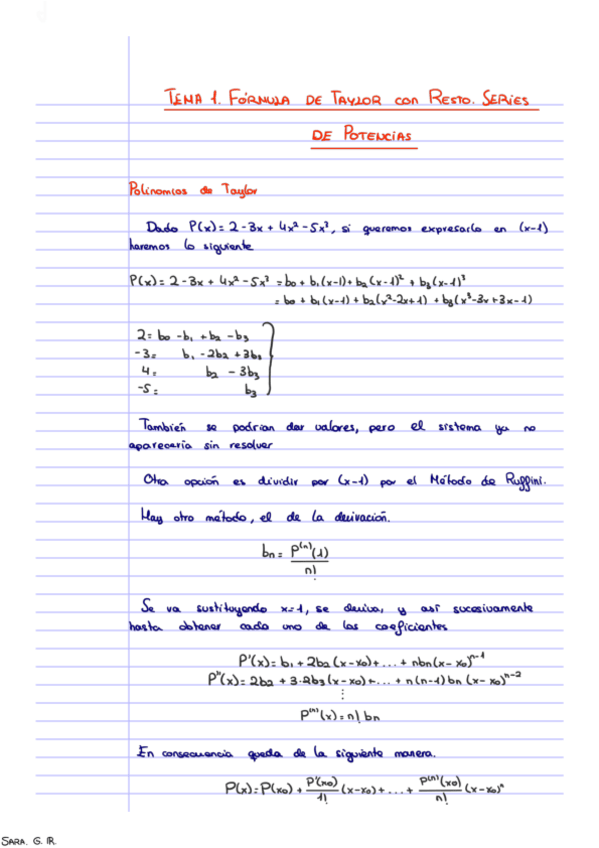 TEMA 1. FÓRMULA DE TAYLOR CON RESTO. SERIES
DE POTENCIAS
Polinomios de Taylor
Dado P(x) = 2 - 3x + 4x² - 5x³, si queremos expresarlo en (x-1)
haremos lo siguiente
P(x) = 2 - 3x + 4x² - 5x³ = b₀ + b₁(x-1) + b₂(x-1)² + b₃(x-1)³
= b₀ + b₁(x-1) + b₂(x²-2x+1) + b₃(x³-3x+3x-1)
2 = b₀ - b₁ + b₂ - b₃
-3 = b₁ - 2b₂ + 3b₃
4 = b₂ - 3b₃
-5 = b₃
También se podrían dar valores, pero el sistema ya no
aparecería sin resolver
Otra opción es dividir por (x-1) por el Método de Ruffini.
Hay otro método, el de la derivación.
bn = P⁽ⁿ⁾(1) / n!
Se va sustituyendo x=1, se deriva, y así sucesivamente
hasta obtener cada uno de los coeficientes
P'(x) = b₁ + 2b₂(x-x₀) + ... + nbn(x-x₀)ⁿ⁻¹
P''(x) = 2b₂ + 3·2b₃(x-x₀) + ... + n(n-1)bn(x-x₀)ⁿ⁻²
⋮
P⁽ⁿ⁾(x) = n! bn
En consecuencia queda de la siguiente manera.
P(x) = P(x₀) + P'(x₀)/1! (x-x₀) + ... + P⁽ⁿ⁾(x₀)/n! (x-x₀)ⁿ
SARA. G. R.